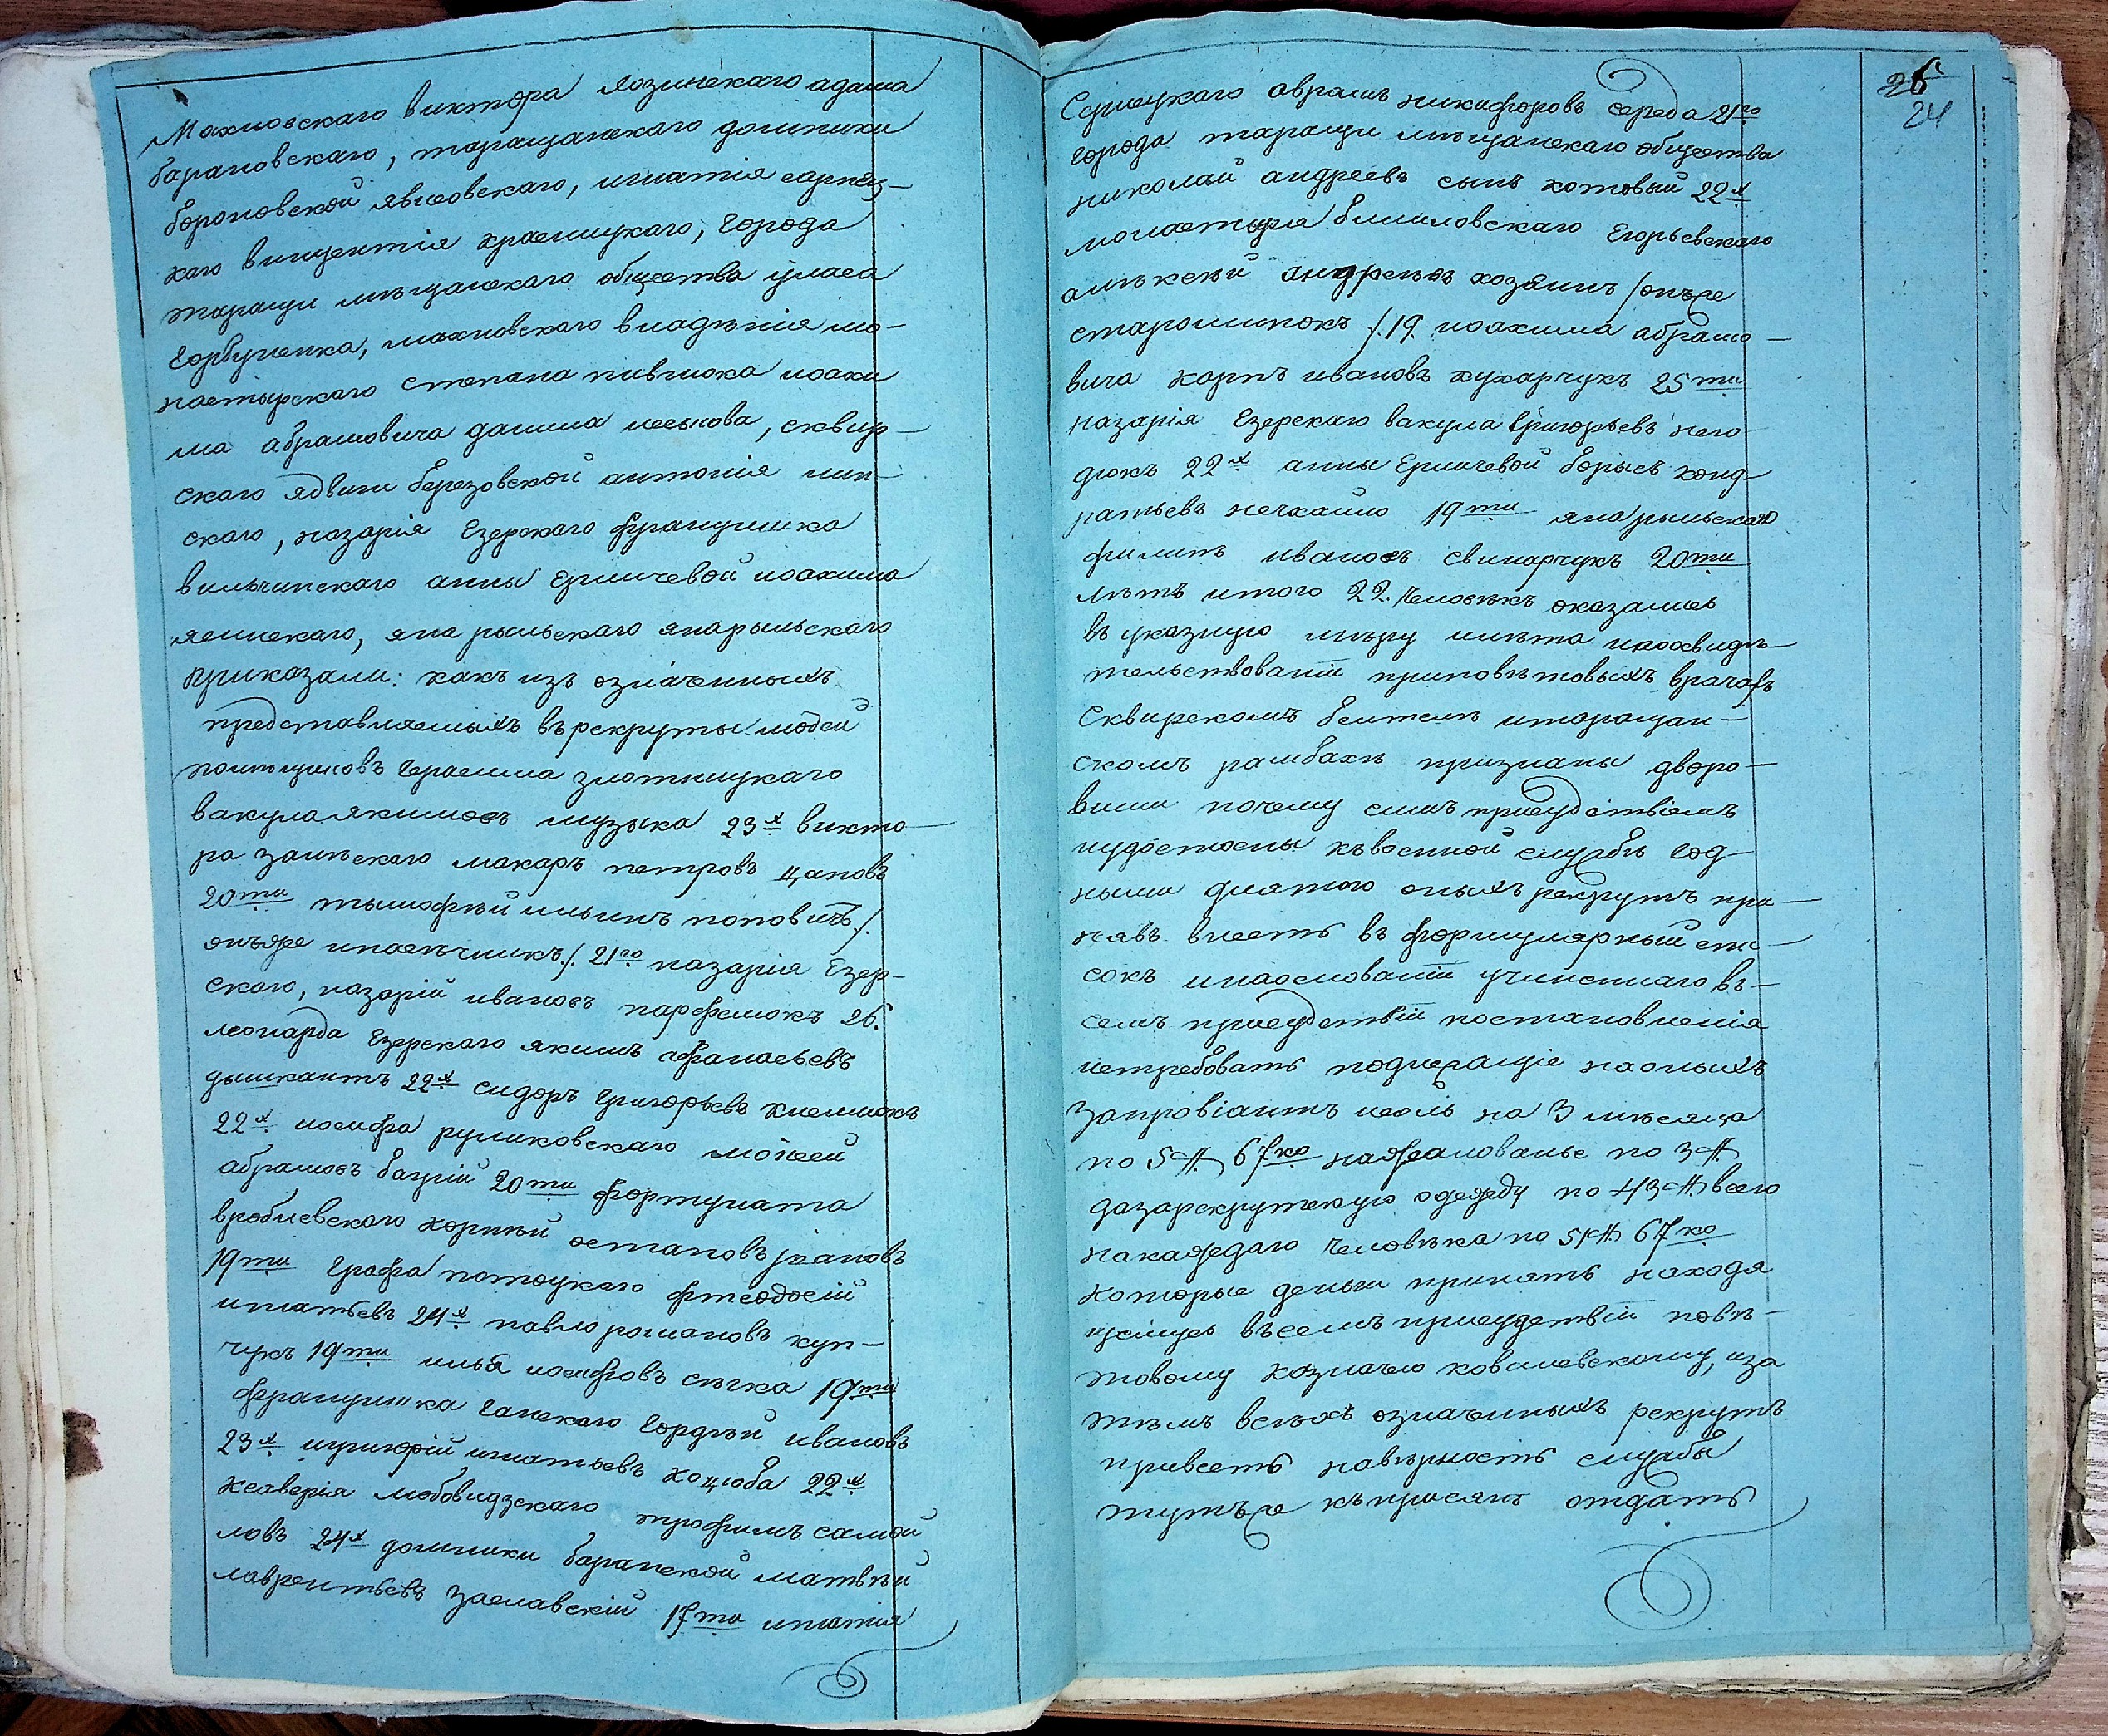 Махновскаго виктора язинскаго адама
барановскаго, таращанскаго доминики
бороновской явговскаго, игнатія
каго винцентія красицкаго, города
таращи мѣщанскаго общества уласа
горбуненка, махновскаго владѣнія мо-
настырскаго степана пивгюка иоахи
ма абрамовича данила, сквир-
скаго ядвиги березовской антонія лип-
скаго, назарія Езерскаго францишка
вильчинскаго анны Ерличевой иоахима
ясинскаго, яна рыльскаго яна рыльскаго
приказали: какъ изъ означенныхъ
представляемыхъ въ рекруты людей
помѣщиковъ герасима злотницкаго
вакула якимовъ музыка 23х викто-
ра залѣскаго макаръ петровъ цаповъ
20ти тымофѣй ильинъ поповичъ /.
онъже и пасѣчникъ /. 21го назарія Езер-
скаго, назарій ивановъ парфенюкъ 26.
леонарда Езерскаго якимъ афанасьевъ
дышкантъ 22х сидоръ григорьевъ
22х иосифа руликовскаго мойсей
абрамовъ бацій 20ти фортуната
вробневскаго корнѣй остаповъ
19ти Графа потоцкаго фтеодосій
игнатьевъ 24х павло романовъ куп-
чукъ 19ти илья иосифовъ сѣчка 19ти
францишка ганскаго гордѣй ивановъ
23х игригорій игнатьевъ коцюба 22х
ксаверія любовидзскаго трофимъ самой
ловъ 24х доминики баранской матвѣй
лаврентьевъ заславскій 17ти игнатія
26
24
Серницкаго аврамъ никифоровъ середа 21го
города таращи мѣщанскаго общества
николай андреевъ сынъ котовый 22х
монастыря Егорьевскаго
алѣксѣй андреевъ хозяинъ /онъже
старошпокъ /. 19. иоахима абрамо-
вича карпъ ивановъ кухарчукъ 25ти
назарія Езерскаго вакула Григорьевъ него-
дюкъ 22х анны Ерличевой борысъ конд-
ратьевъ нечхайло 19ти яна рыльскаго
филипъ ивановъ свинарчукъ 20ти
лѣтъ итого 22. человѣкъ оказались
въ указную мѣру илѣта ипоосвидѣ-
тельствованіи приповѣтовыхъ врачахъ
Сквирскомъ и таращан-
скомъ рамбахѣ признаны здоро-
выми почему симъ присудствіемъ
иудостоены къвоенной службѣ год-
ными длятого оныхъ рекрутъ при-
нявъ внесть въ формулярный спи-
сокъ инаосновании учиненнаго въ-
семъ присудствіи постановленія
истребовать подлежащіе наоныхъ
запровіантъ исоль на 3 мѣсяца
по 5 67ко нажалованье по 3
дазарекрутскую одежду по 43 всего
накаждаго человѣка по 51 67ко
которые деньги принять находя
щемусь въсемъ присудствіи повѣ-
товому казначею ковалевскому, иза
тѣмъ всѣхъ означенныхъ рекрутъ
привесть навѣрность службы
тутъже къприсягѣ отдать